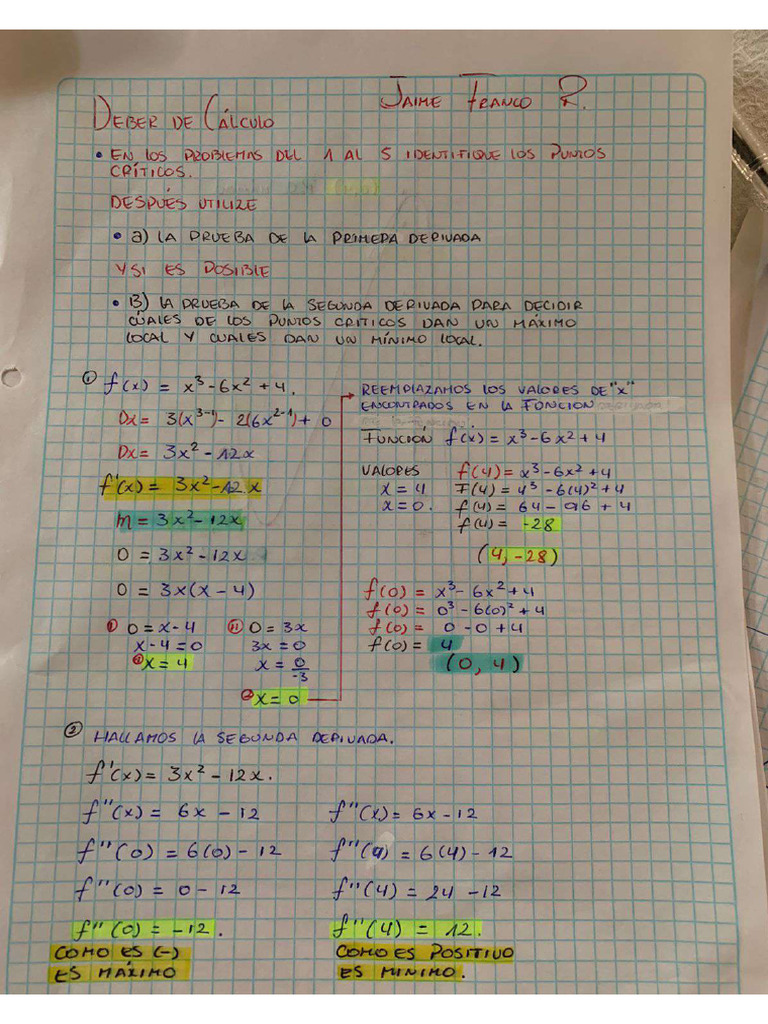 Jaime Franco R.
DEBER DE CÁLCULO
• EN LOS PROBLEMAS DEL 1 AL 5 IDENTIFIQUE LOS PUNTOS
CRÍTICOS.
DESPUÉS UTILIZE
• a) LA PRUEBA DE LA PRIMERA DERIVADA
Y SI ES POSIBLE
• B) LA PRUEBA DE LA SEGUNDA DERIVADA PARA DECIDIR
CÚALES DE LOS PUNTOS CRITICOS DAN UN MÁXIMO
LOCAL Y CUALES DAN UN MÍNIMO LOCAL.
① f(x) = x³-6x²+4.
Dx= 3(x³⁻¹)- 2(6x²⁻¹)+ 0
Dx= 3x²-12x
f'(x)= 3x²-12x
m= 3x²-12x
0 = 3x²-12x
0 = 3x(x-4)
Ⓘ 0=x-4
x-4=0
x=4
ⓘⓘ 0=3x
3x=0
x= 0/-3
x=0
REEMPLAZAMOS LOS VALORES DE "x"
ENCONTRADOS EN LA FUNCION
FUNCIÓN f(x)= x³-6x²+4
VALORES
x=4
x=0.
f(4)=x³-6x²+4
F(4)=4³-6(4)²+4
f(4)= 64-96+4
f(4)= -28
(4,-28)
f(0)= x³-6x²+4
f(0)= 0³-6(0)²+4
f(0)= 0-0+4
f(0)= 4
(0,4)
② HALLAMOS LA SEGUNDA DERIVADA.
f'(x)= 3x²-12x.
f''(x)= 6x-12
f''(0)=6(0)-12
f''(0)= 0-12
f''(0)=-12.
COMO ES (-)
ES MÁXIMO
f''(x)= 6x-12
f''(4)=6(4)-12
f''(4)= 24-12
f''(4)= 12.
COMO ES POSITIVO
ES MINIMO.